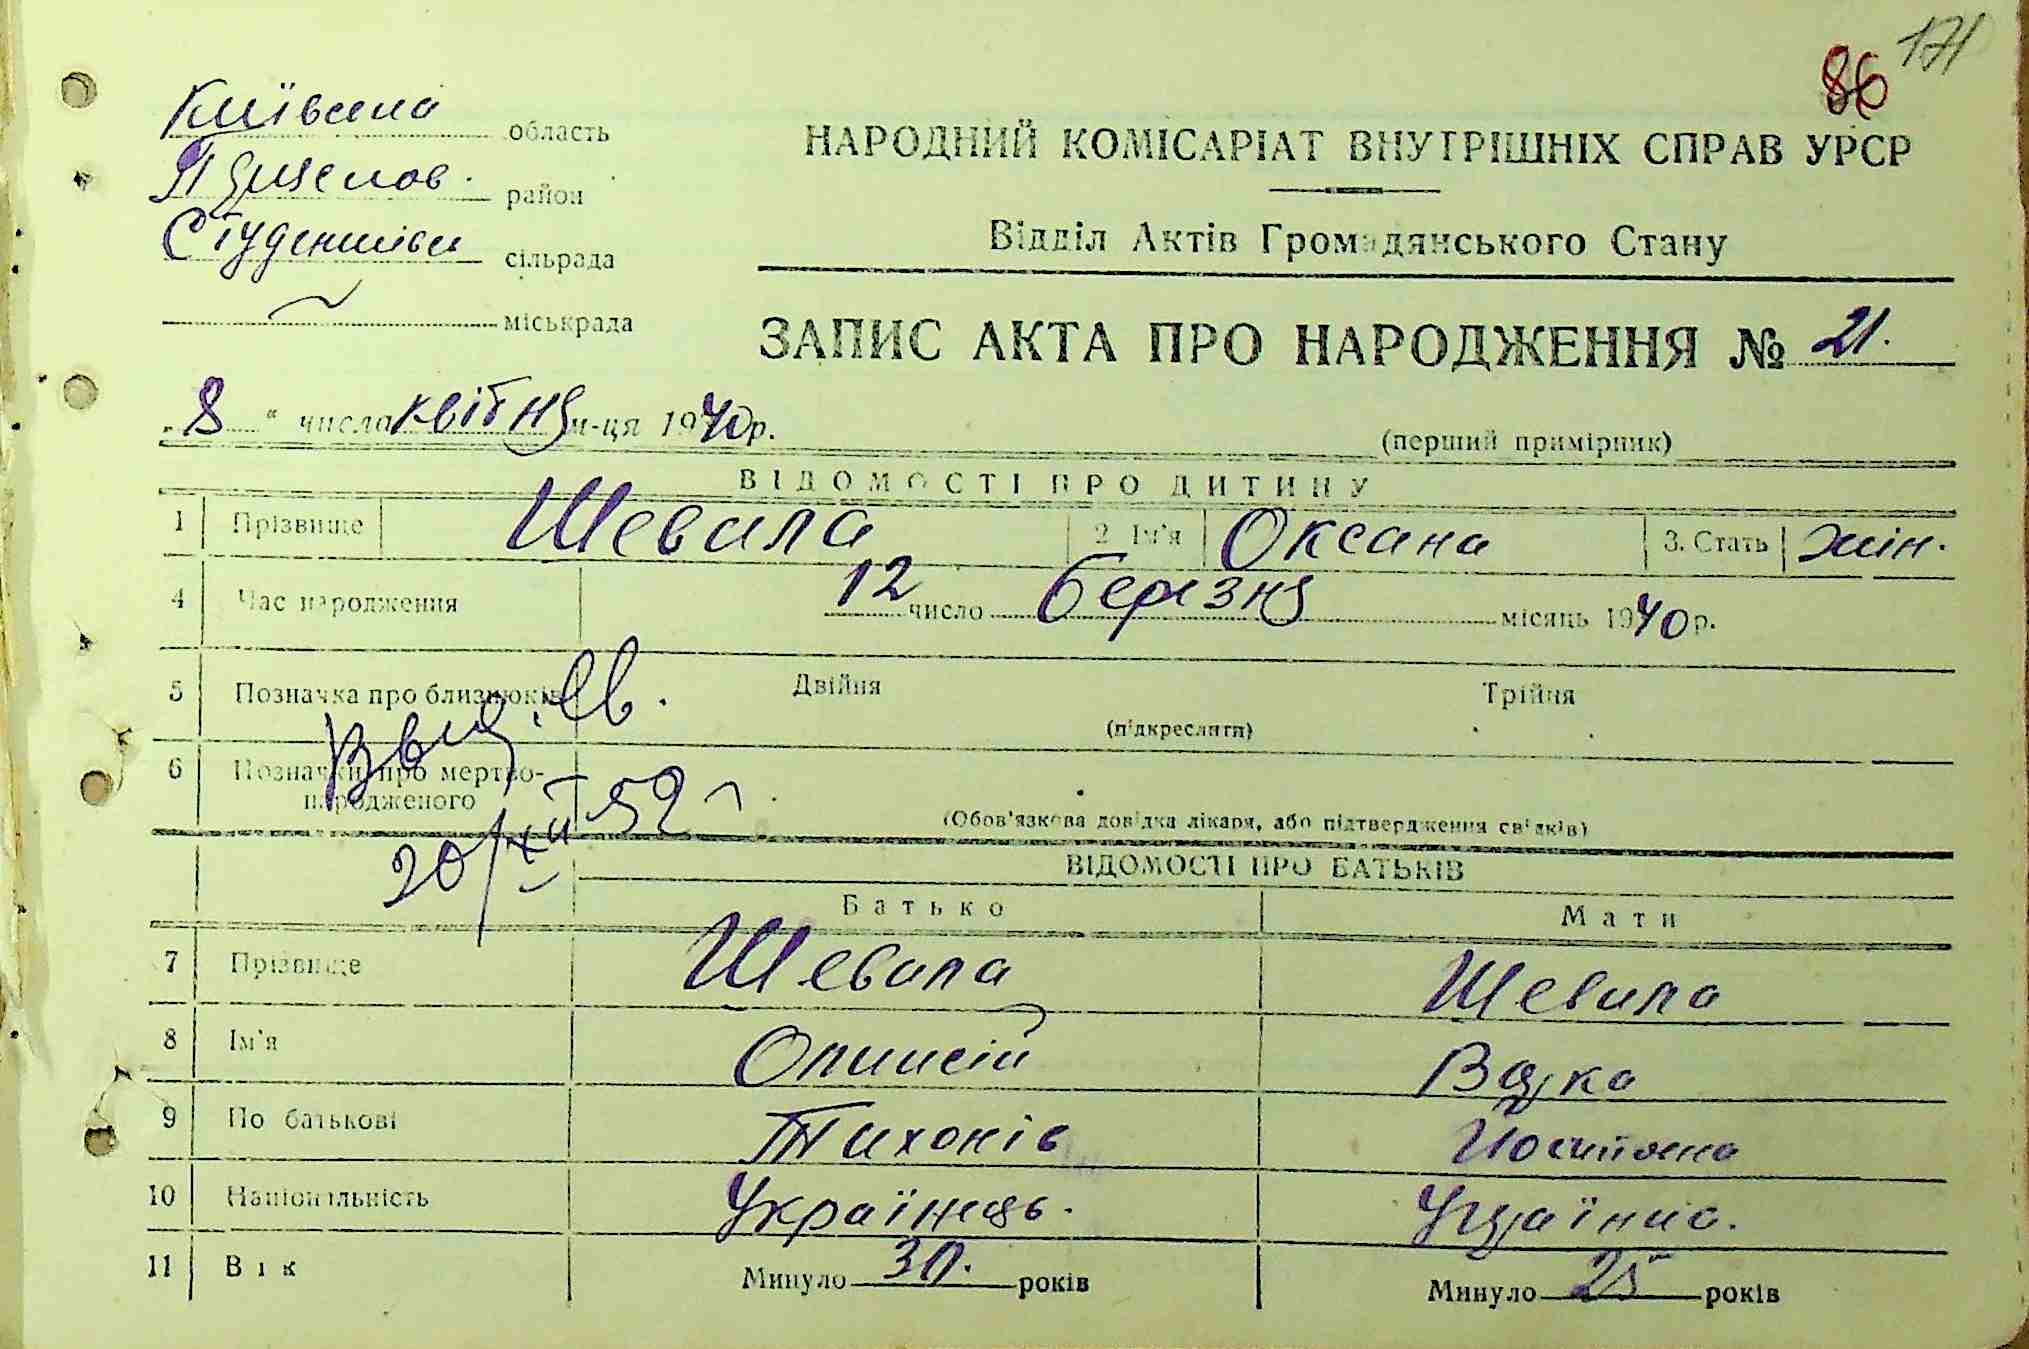 171
86
Київська область
район
сільрада
міськрада
НАРОДНИЙ КОМІСАРІАТ ВНУТРІШНІХ СПРАВ УРСР
Відділ Актів Громадянського Стану
ЗАПИС АКТА ПРО НАРОДЖЕННЯ № 21.
„8“ числа квітня м-ця 1940 р.
(перший примірник)
ВІДОМОСТІ ПРО ДИТИНУ
1 Прізвище Шевила 2 Ім'я Оксана 3. Стать жін.
4 Час народження 12 число березня місяць 1940 р.
5 Позначка про близнюків Двійня Трійня
(підкреслити)
6 Позначки про мертво-
народженого
(Обов'язкова довідка лікаря, або підтвердження свідків)
20/XII 52 г
ВІДОМОСТІ ПРО БАТЬКІВ
Батько Мати
7 Прізвище Шевила Шевила
8 Ім'я
9 По батькові Тихонів
10 Національність Українець. Українка.
11 Вік Минуло 30. років Минуло 25 років